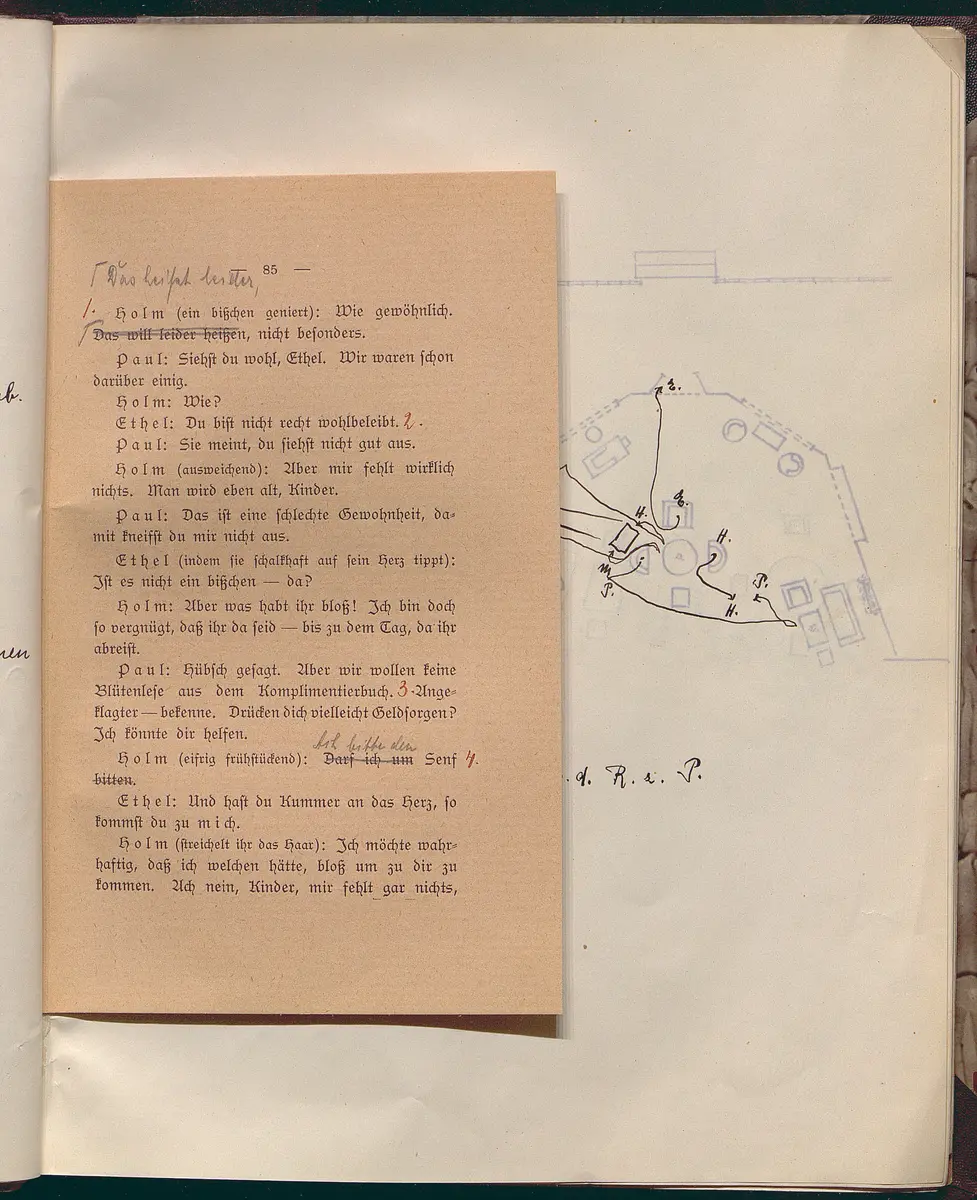 — 85 —
Das heißt leider,
1. Holm (ein bißchen geniert): Wie gewöhnlich.
Das will leider heißen, nicht besonders.
Paul: Siehst du wohl, Ethel. Wir waren schon
darüber einig.
Holm: Wie?
Ethel: Du bist nicht recht wohlbeleibt. 2.
Paul: Sie meint, du siehst nicht gut aus.
Holm (ausweichend): Aber mir fehlt wirklich
nichts. Man wird eben alt, Kinder.
Paul: Das ist eine schlechte Gewohnheit, da-
mit kneifst du mir nicht aus.
Ethel (indem sie schalkhaft auf sein Herz tippt):
Ist es nicht ein bißchen — da?
Holm: Aber was habt ihr bloß! Ich bin doch
so vergnügt, daß ihr da seid — bis zu dem Tag, da ihr
abreist.
Paul: Hübsch gesagt. Aber wir wollen keine
Blütenlese aus dem Komplimentierbuch. 3. Ange-
klagter — bekenne. Drücken dich vielleicht Geldsorgen?
Ich könnte dir helfen.
Ich bitte den
Holm (eifrig frühstückend): Darf ich um Senf 4.
bitten.
Ethel: Und hast du Kummer an das Herz, so
kommst du zu mich.
Holm (streichelt ihr das Haar): Ich möchte wahr-
haftig, daß ich welchen hätte, bloß um zu dir zu
kommen. Ach nein, Kinder, mir fehlt gar nichts,
E.
E.
H.
H.
M
P.
P.
H.
d. R. s. P.